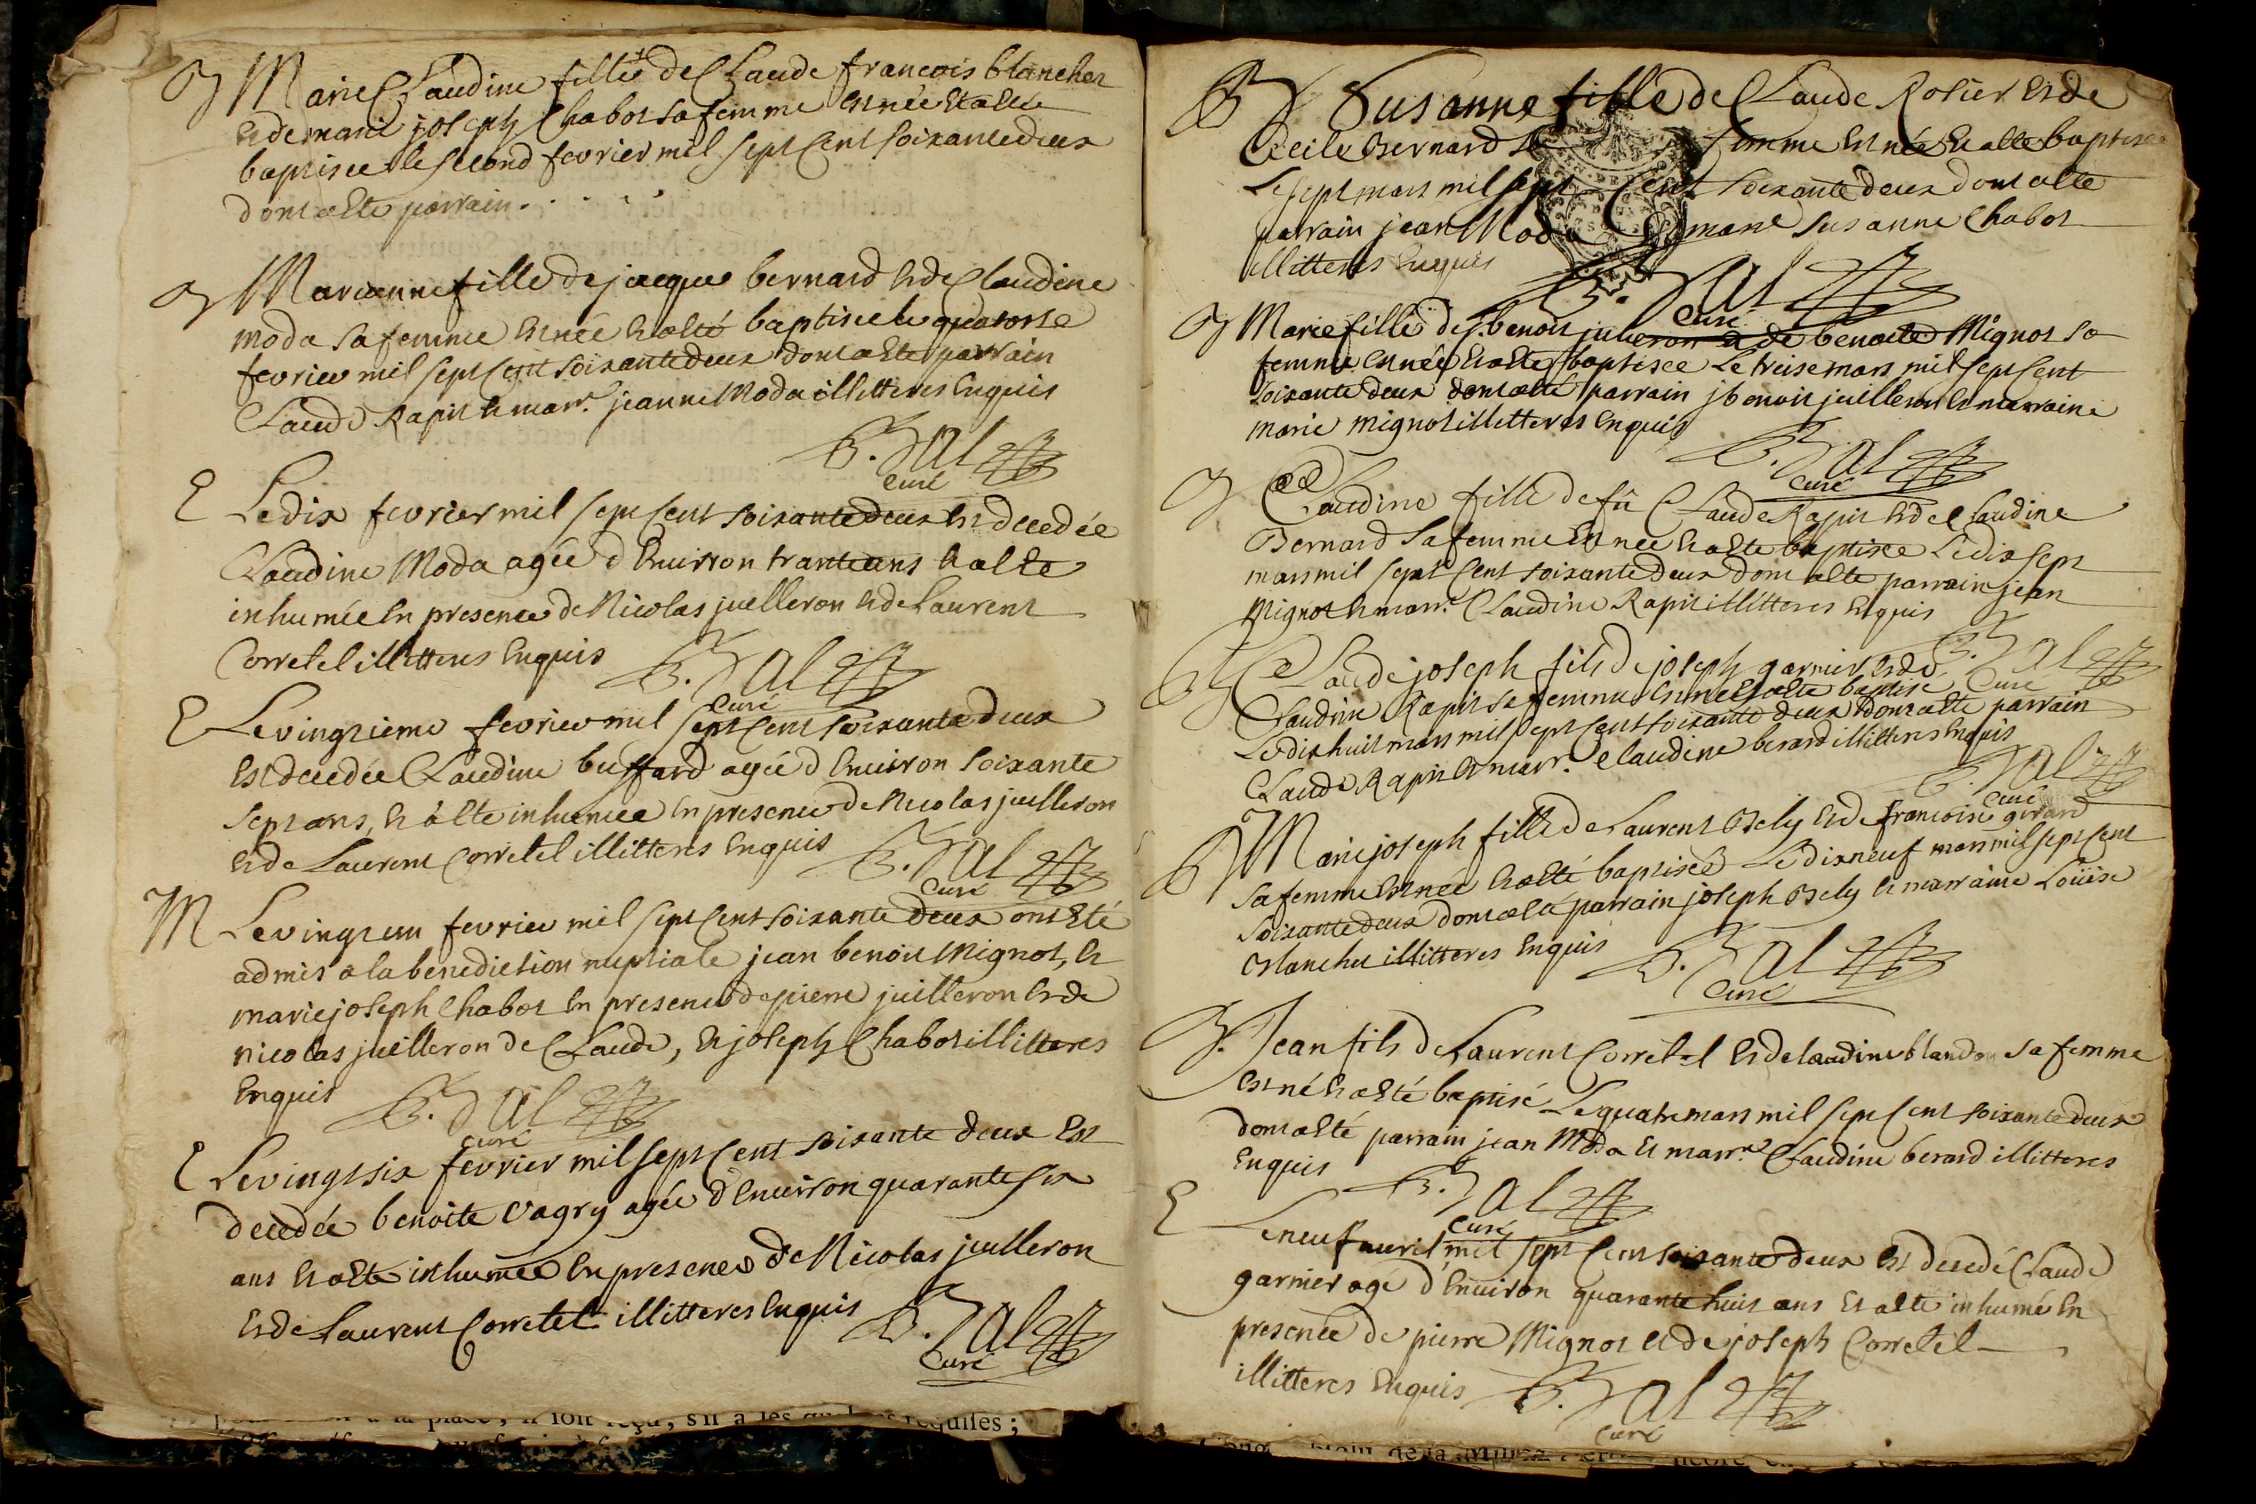 B Marie Claudine fille de Claude francois blanchet
et de marie joseph Chabot sa femme est née et a été
baptisee le second fevrier mil sept Cent soixante deux
dont a eté parrain . . . . .
B Marianne fille de jacque bernard et de Claudine
moda sa femme est née et a eté baptisee le quatorse
fevrier mil sept Cent soixante deux dont a eté parrain
Claude Rapit et marr.e jeanne Moda illitteres Enquis
B. Bal
Curé
E Le dix fevrier mil sept Cent soixante deux est decedée
Claudine Moda agée d'Environ trante ans et a eté
inhumée En presence de Nicolas juilleron et de Laurent
Corretel illitteres Enquis B. Bal
Curé
E Le vingtieme fevrier mil sept Cent soixante deux
Est decedée Claudine buffard agée d'Environ soixante
sept ans, et à eté inhumée En presence de Nicolas juilleron
et de Laurent Corretel illitteres Enquis B. Bal
Curé
M Le vingt un fevrier mil sept Cent soixante deux ont Eté
admis a la benediction nuptiale jean benoit Mignot, et
marie joseph Chabot En presence de pierre juilleron et de
nicolas juilleron de Claude, et joseph Chabot illitteres
Enquis B. Bal
Curé
E Le vingt six fevrier mil sept Cent soixante deux Est
decedée benoite Vagry agée d'Environ quarante six
ans et a eté inhumée En presence de Nicolas juilleron
et de Laurent Corretel illitteres Enquis B. Bal
Curé
B Susanne fille de Claude Rosier et de
Cecile Bernard sa femme est née et a eté baptisée
Le sept mars mil sept Cent soixante deux dont a eté
parrain jean Moda Et mare Susanne Chabot
illitteres Enquis B. Bal
Curé
B Marie fille de j benoit juileron et de benoite Mignot sa
femme est née et a eté baptisée Le treise mars mil sept Cent
soixante deux dont a eté parrain j benoit juilleron et marraine
marie mignot illitteres Enquis B. Bal
Curé
B Claudine fille de fû Claude Rapit et de Claudine
Bernard sa femme est née et a eté baptisée Le dix sept
mars mil sept Cent soixante deux dont a eté parrain jean
Mignot et marr.e Claudine Rapit illitteres Enquis
B. Bal
Curé
B Claude joseph fils de joseph garnier et de
Claudine Rapit sa femme est né et a eté baptisé
Le dix huit mars mil sept Cent soixante deux dont a eté parrain
Claude Rapit et marr.e Claudine berard illitteres Enquis
B. Bal
Curé
B Marie joseph fille de Laurent Bely et de francoise girard
sa femme est née et a eté baptisée Le dix neuf mars mil sept Cent
soixante deux dont a eté parrain joseph Bely et marraine Loüise
Blanchet illitteres Enquis B. Bal
Curé
B. Jean fils de Laurent Corretel et de laudine blandon sa femme
est né et a eté baptisé Le quatre mars mil sept Cent soixante deux
dont a eté parrain jean Moda et marr.e Claudine berard illitteres
Enquis B. Bal
Curé
E Le neuf avril mil sept Cent soixante deux est decedé Claude
garnier agé d'Environ quarante huit ans et a eté inhumé En
presence de pierre Mignot et de joseph Corretel
illitteres Enquis B. Bal
Curé